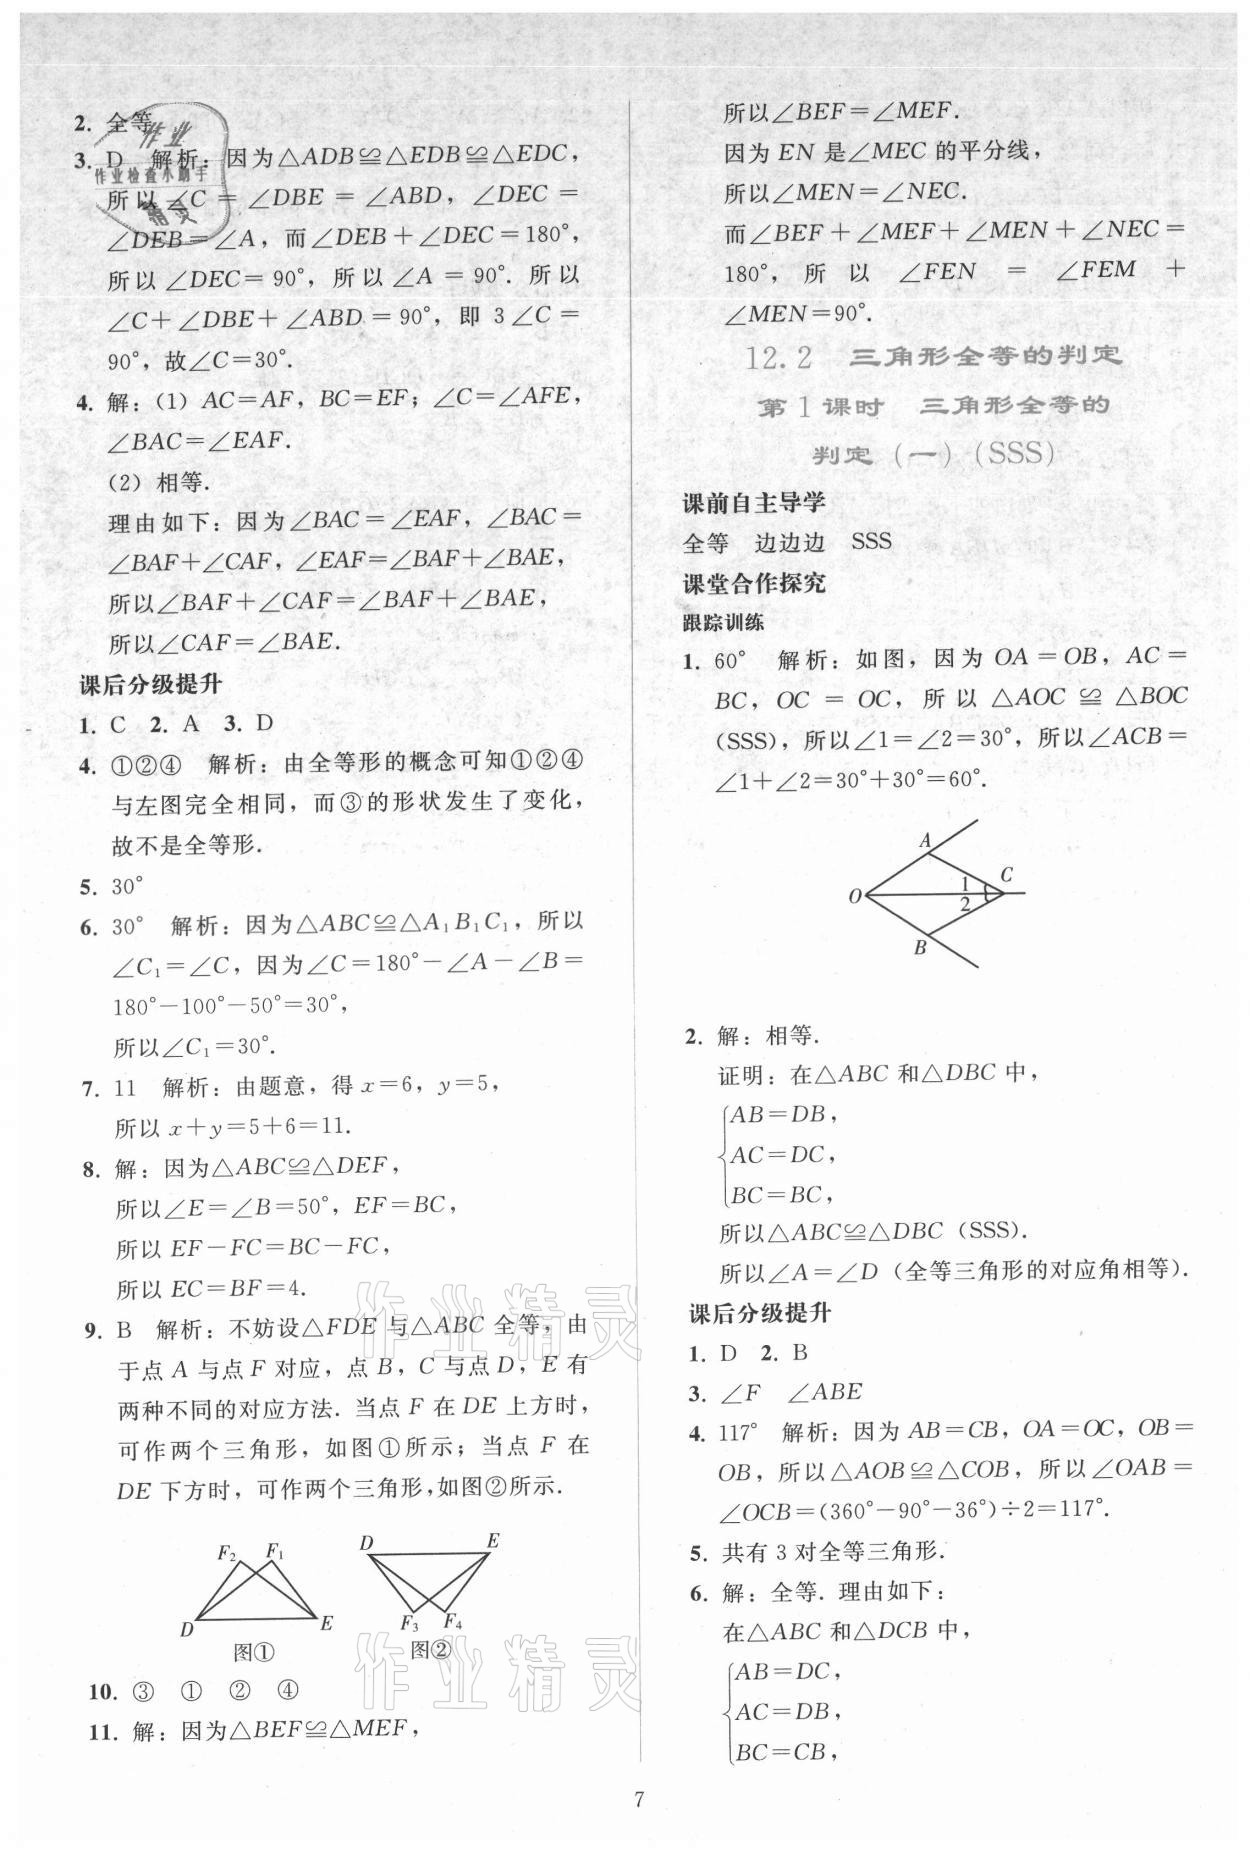 2. 全等
3. D 解析：因为△ADB≌△EDB≌△EDC，
所以∠C＝∠DBE＝∠ABD，∠DEC＝
∠DEB＝∠A，而∠DEB＋∠DEC＝180°，
所以∠DEC＝90°，所以∠A＝90°．所以
∠C＋∠DBE＋∠ABD＝90°，即 3∠C＝
90°，故∠C＝30°．
4. 解：(1) AC＝AF，BC＝EF；∠C＝∠AFE，
∠BAC＝∠EAF．
(2) 相等．
理由如下：因为∠BAC＝∠EAF，∠BAC＝
∠BAF＋∠CAF，∠EAF＝∠BAF＋∠BAE，
所以∠BAF＋∠CAF＝∠BAF＋∠BAE，
所以∠CAF＝∠BAE．
课后分级提升
1. C 2. A 3. D
4. ①②④ 解析：由全等形的概念可知①②④
与左图完全相同，而③的形状发生了变化，
故不是全等形．
5. 30°
6. 30° 解析：因为△ABC≌△A₁B₁C₁，所以
∠C₁＝∠C，因为∠C＝180°－∠A－∠B＝
180°－100°－50°＝30°，
所以∠C₁＝30°．
7. 11 解析：由题意，得 x＝6，y＝5，
所以 x＋y＝5＋6＝11．
8. 解：因为△ABC≌△DEF，
所以∠E＝∠B＝50°，EF＝BC，
所以 EF－FC＝BC－FC，
所以 EC＝BF＝4．
9. B 解析：不妨设△FDE 与△ABC 全等，由
于点 A 与点 F 对应，点 B，C 与点 D，E 有
两种不同的对应方法．当点 F 在 DE 上方时，
可作两个三角形，如图①所示；当点 F 在
DE 下方时，可作两个三角形，如图②所示．
F₂ F₁
D E
图①
D E
F₃ F₄
图②
10. ③ ① ② ④
11. 解：因为△BEF≌△MEF，
所以∠BEF＝∠MEF．
因为 EN 是∠MEC 的平分线，
所以∠MEN＝∠NEC．
而∠BEF＋∠MEF＋∠MEN＋∠NEC＝
180°，所以 ∠FEN ＝ ∠FEM ＋
∠MEN＝90°．
12.2 三角形全等的判定
第1课时 三角形全等的
判定（一）（SSS）
课前自主导学
全等 边边边 SSS
课堂合作探究
跟踪训练
1. 60° 解析：如图，因为 OA＝OB，AC＝
BC，OC＝OC，所以△AOC≌△BOC
(SSS)，所以∠1＝∠2＝30°，所以∠ACB＝
∠1＋∠2＝30°＋30°＝60°．
A
O 1 C
2
B
2. 解：相等．
证明：在△ABC 和△DBC 中，
AB＝DB，
AC＝DC，
BC＝BC，
所以△ABC≌△DBC（SSS）．
所以∠A＝∠D（全等三角形的对应角相等）．
课后分级提升
1. D 2. B
3. ∠F ∠ABE
4. 117° 解析：因为 AB＝CB，OA＝OC，OB＝
OB，所以△AOB≌△COB，所以∠OAB＝
∠OCB＝(360°－90°－36°)÷2＝117°．
5. 共有 3 对全等三角形．
6. 解：全等．理由如下：
在△ABC 和△DCB 中，
AB＝DC，
AC＝DB，
BC＝CB，
7
作业
作业检查小助手
精灵
作业精灵
作业精灵